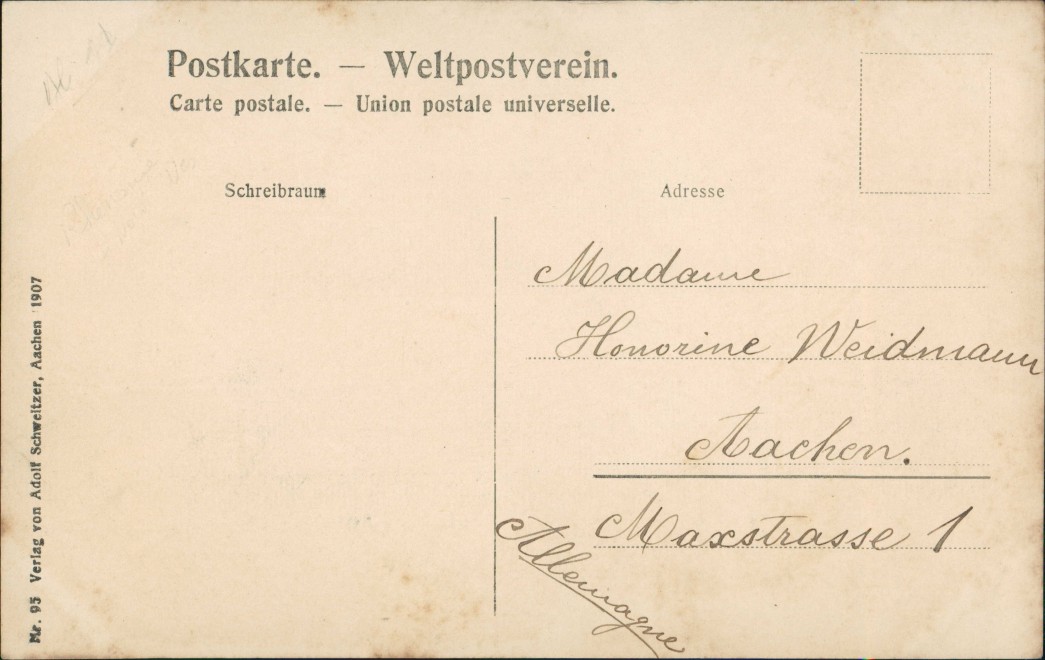 Postkarte. — Weltpostverein.
Carte postale. — Union postale universelle.
Schreibraum
Adresse
Madame
Honorine Weidmann
Aachen.
Maxstrasse 1
Allemagne
Nr. 95 Verlag von Adolf Schweitzer, Aachen 1907